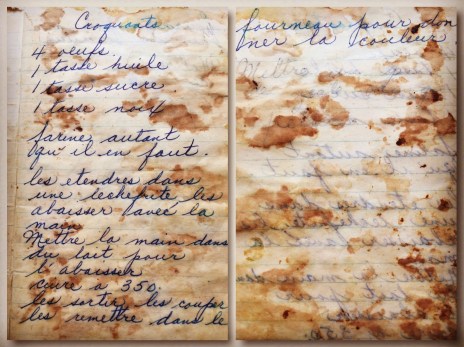 Croquants
4 oeufs.
1 tasse huile
1 tasse sucre.
1 tasse noix
farine autant
qu'il en faut.
les etendres dans
une lechefrite les
abaisser avec la
main
Mettre la main dans
du lait pour
l'abaisser
cuire a 350.
les sortir les couper
les remettre dans le
fourneau pour don
ner la couleur